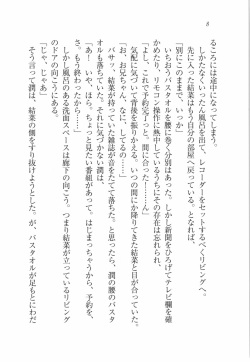 8
るころには途中になってしまう。
しかたなくいったん風呂を出て、レコーダーをセットするべくリビングへ。
先に入った結菜はもう自分の部屋へ戻っている、となれば、
「別にこのままで、いっか」
いちおうバスタオルを腰に巻く分別はあった。しかし新聞をひろげてテレビ欄を確
かめ、リモコン操作に熱中しているうちにその存在は忘れられ、
「よし、これで予約完了っと、間に合った！……ん」
気配に気づいて背後を振りかえる。いつの間にか降りてきた結菜と目が合った。
「お、お兄ちゃん、なに、してるの……」
そして、結菜の持っていた雑誌が音をたてて落ちた。と思ったら、潤の腰のバスタ
オルも落ちていた。それに気づかない潤は、
「あ！　いや、ほら、ちょっと見たい番組があって、はじまっちゃうから、予約を、
さ。もう終わる……終わったから！」
「じゃ、じゃあ……」
そう言って潤は、結菜の側をすり抜けようとする。が、バスタオルが足もとにわだ
しかし風呂のある洗面スペースは廊下の向こう。つまり結菜の立っているリビング
のドアの向こうにある。